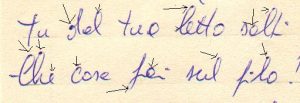 Tu dal tuo letto salti
Che cosa fai sul filo?